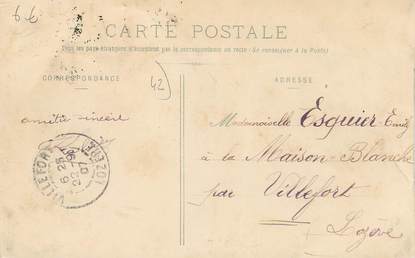 6€
CARTE POSTALE
Tous les pays étrangers n'acceptent pas la correspondance au recto (Se renseigner à la Poste)
CORRESPONDANCE
ADRESSE
42
amitié sincère
Mademoiselle Esquier
à la Maison-Blanche
par Villefort
Lozère
VILLEFORT
LOZERE